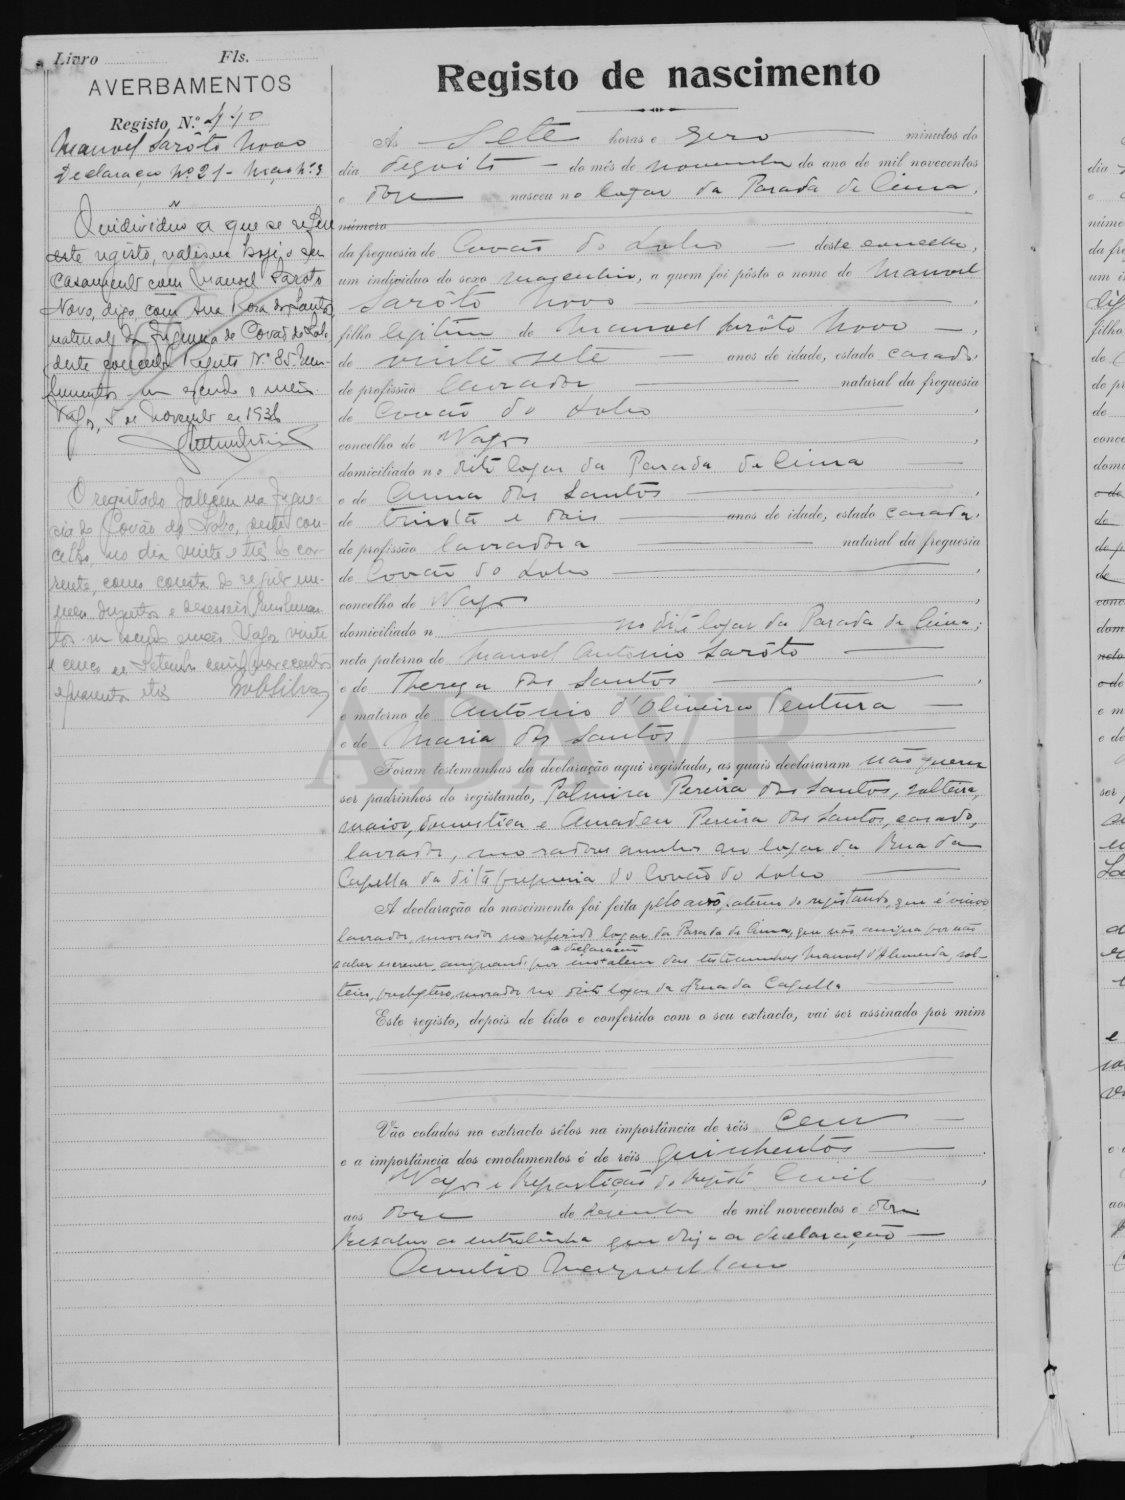 Livro Fls.
AVERBAMENTOS
Registo N.º 410
Manoel Sarôto Novo
Declaração Nº 21 - Maço nº 3
O individuo a que se refere
este registo, realisou hoje o seu
casamento com Manoel Saroto
Novo, digo, com Ana Rosa dos Santos,
natural da freguesia de Covão do Lobo,
deste concelho. Registo Nº 85. Emo-
lumentos
Vagos, 5 de Novembro de 193
O registado faleceu na fregue-
sia de Covão do Lobo, deste con-
celho, no dia vinte e três do cor-
rente, como consta do registo nu-
mero duzentos e dezasseis. Emolumen-
tos Vagos vinte
e cinco de Setembro de mil novecentos
e três
Registo de nascimento
Às Sete horas e zero minutos do
dia dezoito do mês de novembro do ano de mil novecentos
e doze nasceu no logar da Parada de Cima,
número
da freguesia de Covão do Lobo deste concelho,
um indivíduo do sexo masculino, a quem foi pôsto o nome de Manoel
Sarôto Novo ,
filho legitimo de Manoel Sarôto Novo ,
de vinte sete anos de idade, estado casado,
de profissão lavrador natural da freguesia
de Covão do Lobo ,
concelho de Vagos ,
domiciliado no dito logar da Parada de Cima
e de Anna dos Santos ,
de trinta e dois anos de idade, estado casada,
de profissão lavradora natural da freguesia
de Covão do Lobo ,
concelho de Vagos ,
domiciliado n no dito logar da Parada de Cima;
neto paterno de Manoel Antonio Sarôto
e de Thereza dos Santos ,
e materno de Antonio d'Oliveira Ventura
e de Maria dos Santos
Foram testemunhas da declaração aqui registada, as quais declararam não querer
ser padrinhos do registando, Palmira Pereira dos Santos, solteira,
maior, domestica e Amadeu Pereira dos Santos, casado,
lavrador, moradores ambos no logar da Rua da
Capella da dita freguesia do Covão do Lobo
A declaração do nascimento foi feita pelo avô paterno do registando, que é viuvo
lavrador, morador no referido logar da Parada de Cima, que não assigna por não
a declaração
saber escrever, assignando por alem das testemunhas Manoel d'Almeida, sol-
teiro, presbytero, morador no dito logar da Rua da Capella
Este registo, depois de lido e conferido com o seu extracto, vai ser assinado por mim
Vão colados no extracto sêlos na importância de réis Cem
e a importância dos emolumentos é de réis quinhentos
Vagos e Repartição do Registo Civil ,
aos doze de dezembro de mil novecentos e doze.
Resalvo a entrelinha que diz a declaração
ADAVR